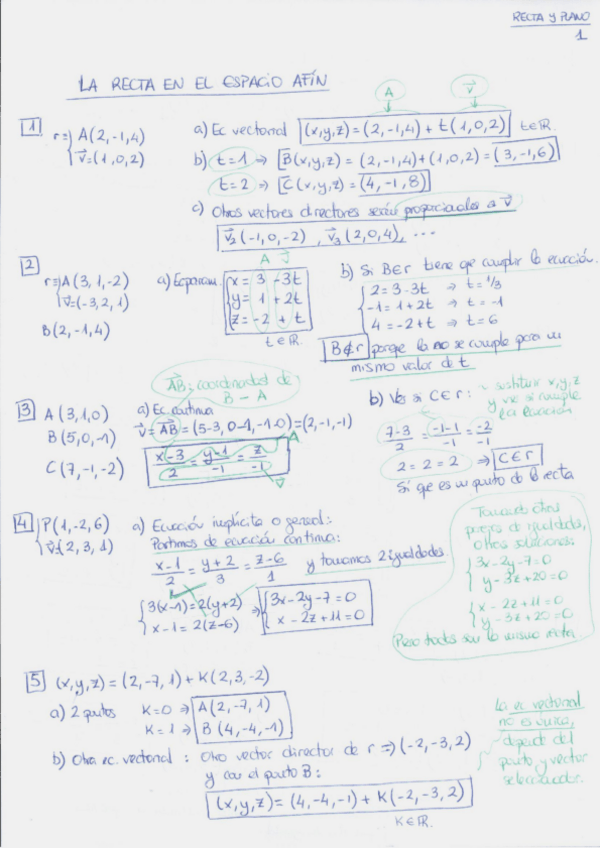 RECTA Y PLANO
1
LA RECTA EN EL ESPACIO AFÍN
1
r≡ { A(2,-1,4)
v⃗=(1,0,2)
A
v⃗
a) Ec vectorial (x,y,z)=(2,-1,4)+t(1,0,2) t∈ℝ.
b) t=1 ⇒ B(x,y,z) = (2,-1,4)+(1,0,2)=(3,-1,6)
t=2 ⇒ C(x,y,z)=(4,-1,8)
c) Otros vectores directores serán proporcionales a v⃗
v⃗₂(-1,0,-2), v⃗₃(2,0,4), ...
2
r≡ { A(3,1,-2)
v⃗=(-3,2,1)
B(2,-1,4)
A v⃗
a) Ec param.
x = 3 -3t
y = 1 +2t
z = -2 + t
t∈ℝ.
b) Si B∈r tiene que cumplir la ecuación.
2=3-3t ⇒ t=1/3
-1=1+2t ⇒ t=-1
4=-2+t ⇒ t=6
B∉r porque no se cumple para un
mismo valor de t
AB⃗: coordenadas de
B - A
3
A(3,1,0)
B(5,0,-1)
C(7,-1,-2)
a) Ec. continua
v⃗=AB⃗=(5-3,0-1,-1-0)=(2,-1,-1)
(x-3)/2 = (y-1)/-1 = z/-1
A
v⃗
b) Ver si C∈r: sustituir x,y,z
y ver si cumple
la ecuación
(7-3)/2 = (-1-1)/-1 = -2/-1
2=2=2 ⇒ C∈r
Sí que es un punto de la recta
4
P(1,-2,6)
v⃗(2,3,1)
a) Ecuación implícita o general:
Partimos de ecuación continua:
(x-1)/2 = (y+2)/3 = (z-6)/1 y tomamos 2 igualdades
3(x-1)=2(y+2)
x-1=2(z-6)
⇒ { 3x-2y-7=0
x-2z+11=0
Tomando otras
parejas de igualdades,
otras soluciones:
3x-2y-7=0
y-3z+20=0
x-2z+11=0
y-3z+20=0
Pero todas son la misma recta
5 (x,y,z)=(2,-7,1)+K(2,3,-2)
a) 2 puntos K=0 ⇒ A(2,-7,1)
K=1 ⇒ B(4,-4,-1)
b) Otra ec. vectorial: Otro vector director de r ⇒ (-2,-3,2)
y con el punto B:
(x,y,z)=(4,-4,-1)+K(-2,-3,2)
K∈ℝ.
La ec vectorial
no es única,
depende del
punto y vector
seleccionador.